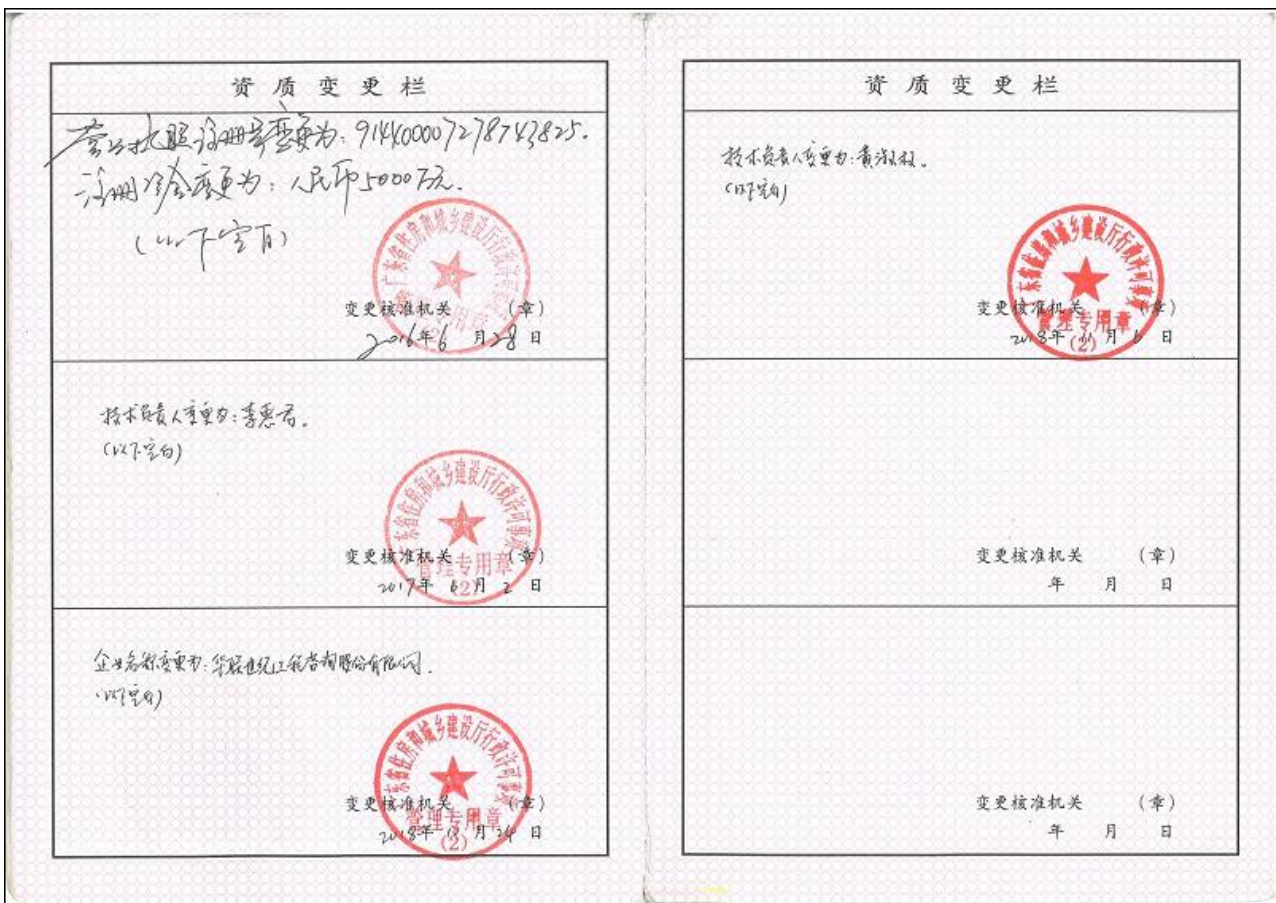 资质变更栏
营业执照注册号变更为：914400007278743825.
注册资金变更为：人民币5000万元.
（以下空白）
广东省住房和城乡建设厅行政许可事项
管理专用章
变更核准机关 （章）
2016年6月28日
技术负责人变更为：李惠君。
（以下空白）
广东省住房和城乡建设厅行政许可事项
管理专用章
(2)
变更核准机关 （章）
2017年6月2日
企业名称变更为：华联世纪工程咨询股份有限公司.
（以下空白）
广东省住房和城乡建设厅行政许可事项
管理专用章
(2)
变更核准机关 （章）
2018年 月24日
资质变更栏
技术负责人变更为：黄淑
（以下空白）
广东省住房和城乡建设厅行政许可事项
管理专用章
(2)
变更核准机关 （章）
2018年11月6日
变更核准机关 （章）
年 月 日
变更核准机关 （章）
年 月 日